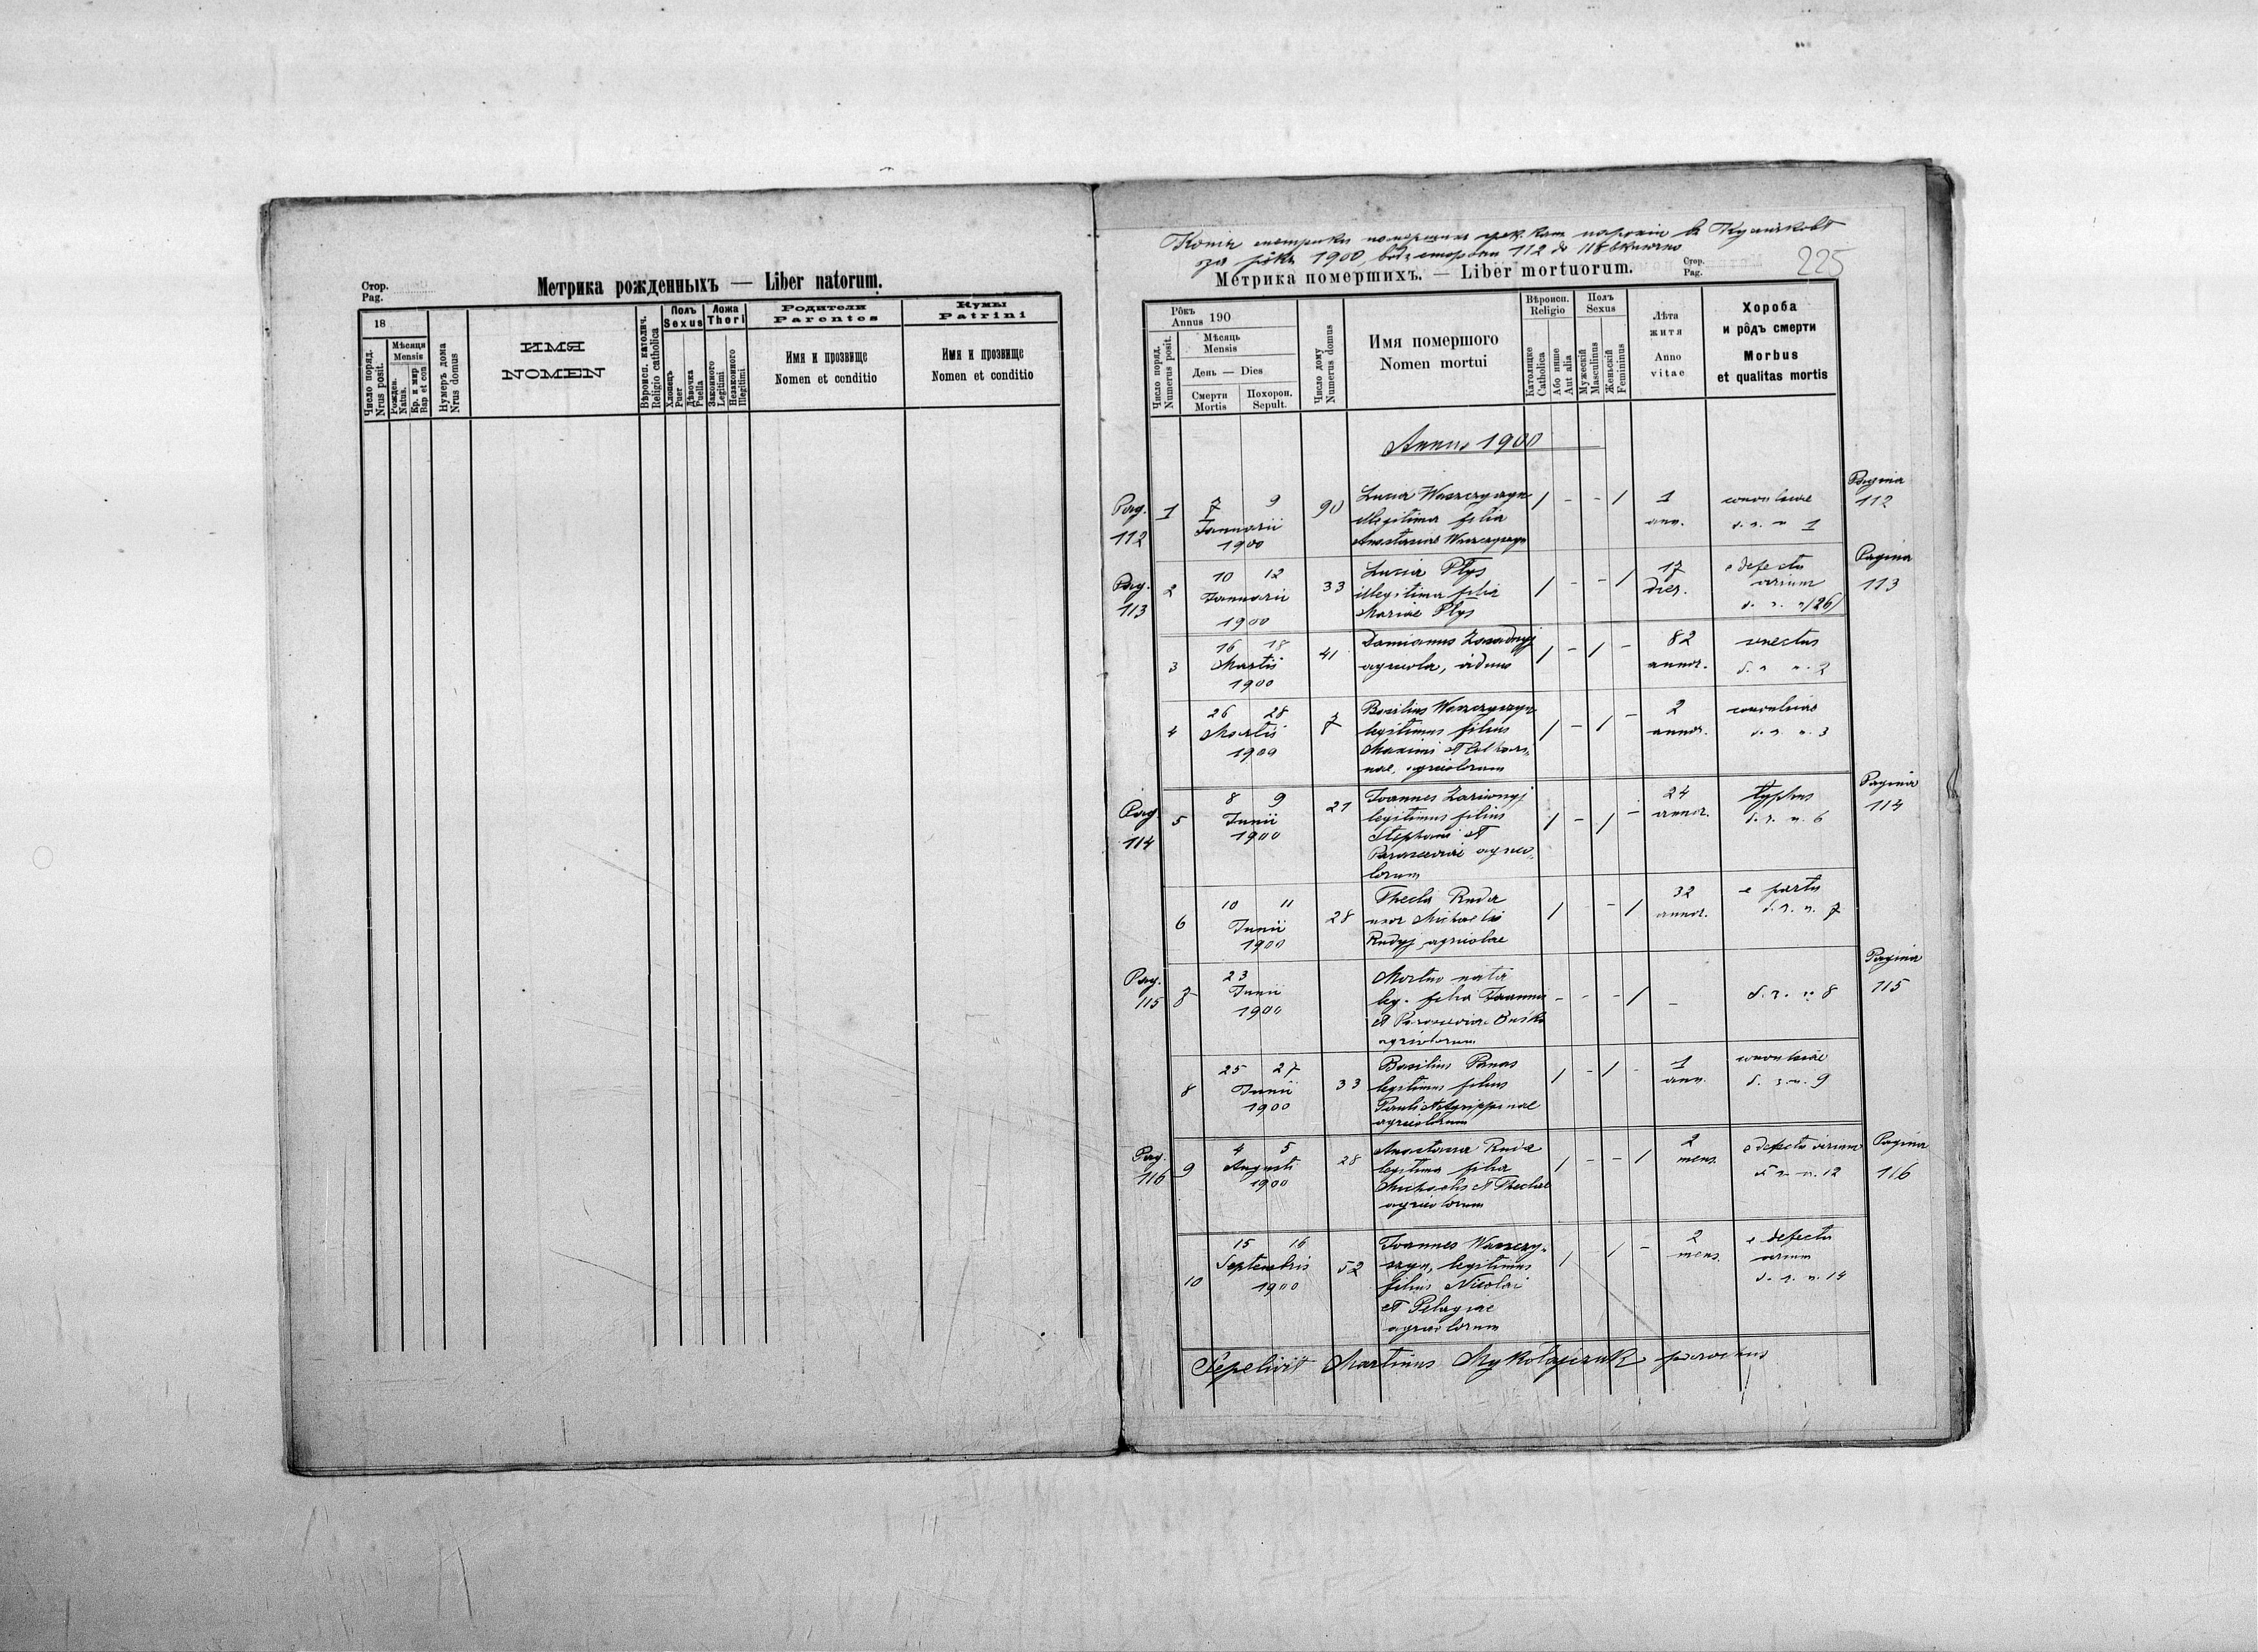 Стор.
Pag.
Метрика рожденныхъ — Liber natorum.
18
Число поряд.
Nrus posit.
Мѣсяця
Mensis
Рожден.
Natus.
Кр. и мир
Bap et con
Нумеръ дома
Nrus domus
ИМЯ
NOMEN
Вѣроисп. католич.
Religio catholica
Полъ
Sexus
Хлопець
Puer
Дѣвочка
Puella
Ложа
Thori
Законного
Legitimi
Незаконного
Illegitimi
Родители
Parentes
Имя и прозвище
Nomen et conditio
Кумы
Patrini
Имя и прозвище
Nomen et conditio
за рôкъ 1900, вôд сторони 112 до 118 включно
225
Метрика помершихъ. — Liber mortuorum.
Стор.
Pag.
Рôкъ
Annus 190
Число поряд.
Numerus posit.
Мѣсяць
Mensis
День — Dies
Смерти
Mortis
Похорон.
Sepult.
Число дому
Numerus domus
Имя помершого
Nomen mortui
Вѣроисп.
Religio
Католицке
Catholica
Або инше
Aut alia
Полъ
Sexus
Мужескій
Masculinus
Женьскій
Feminimus
Лѣта
житя
Anno
vitae
Хороба
и рôдъ смерти
Morbus
et qualitas mortis
Annus 1900
Pag. 112 1 7 9 Januarii 1900 90
Lucia Waszczyszyn
illegitima filia
Anastasiae Waszczyszyn
/ - - / 1 ann.
convulsiae
d. r. n 1
Pagina 112
Pag. 113 2 10 12 Januarii 1900 33
Lucia Płys
illegitima filia
Mariae Płys
/ - - / 17 dier.
e defectu
virium
d. r. n /26/
Pagina 113
3 16 18 Martii 1900 41
Damianus Zasadnyj
agricola, viduus
/ - / - 82 annor.
senectus
d. r. n. 2
4 26 28 Martii 1900 7
Basilius Waszczyszyn
legitimus filius
Maximi et Cathari-
nae, agricolarum
/ - / - 2 annor.
convulsiae
d. r. n. 3
Pag. 114 5 8 9 Junii 1900 21
Joannes
legitimus filius
Stephani et
Parasceviae agrico-
larum
/ - / - 24 annor.
typhus
d. r. n. 6
Pagina 114
6 10 11 Junii 1900 28
Thecla Ruda
uxor Michaelis
Rudyj agricolae
/ - - / 32 annor.
e partu
d. r. n. 7
Pag. 115 7 23 Junii 1900
Mortuo nata
leg. filia Joannis
et Parasceviae
agricolarum
- - - / -
d. r. n. 8
Pagina 115
8 25 27 Junii 1900 33
Basilius Panas
legitimus filius
Pauli et Agrippinae
agricolarum
/ - / - 1 ann.
convulsiae
d. r. n. 9
Pag. 116 9 4 5 Augusti 1900 28
Anastasia Ruda
legitima filia
Michaelis et Theclae
agricolarum
/ - - / 2 mens.
e defectu virium
d. r. n. 12
Pagina 116
10 15 16 Septembris 1900 52
Joannes Waszczy-
szyn, legitimus
filius Nicolai
et Pelagiae
agricolarum
/ - / - 2 mens.
e defectu
virium
d. r. n. 14
Sepelivit Martinus Mykołajczuk parochus